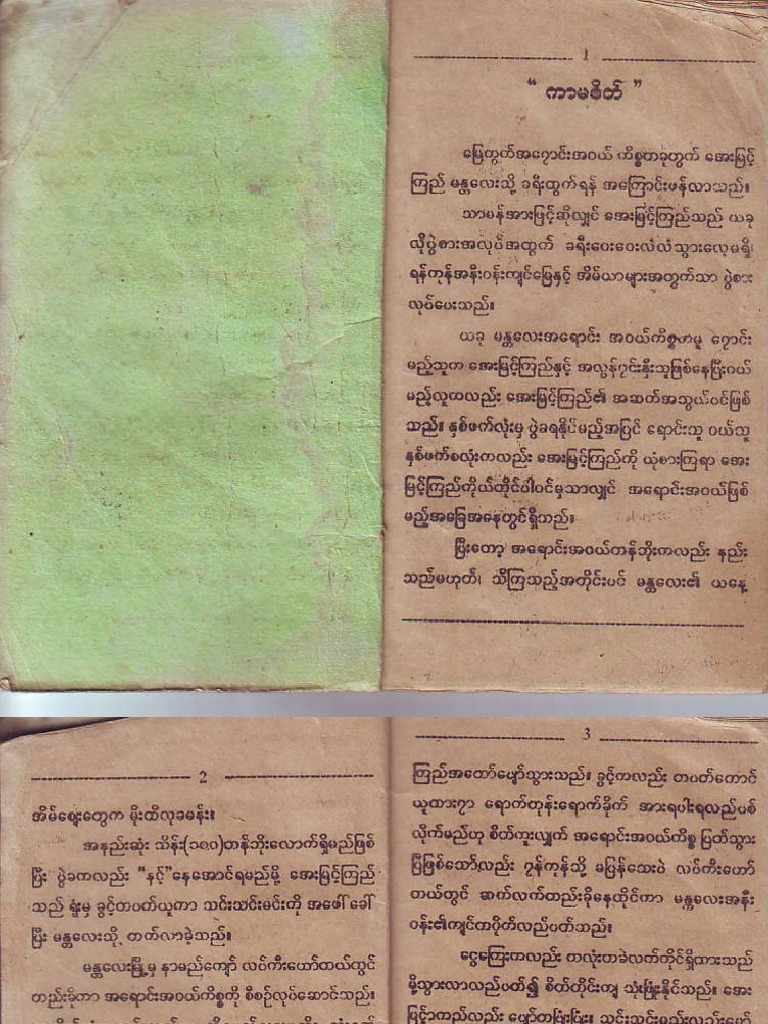 1
“ ကာမစိတ် ”
မြေကွက်အရောင်းအဝယ် ကိစ္စတခုတွက် အေးမြင့်
ကြည် မန္တလေးသို့ ခရီးထွက်ရန် အကြောင်းဖန်လာသည်။
သာမန်အားဖြင့်ဆိုလျှင် အေးမြင့်ကြည်သည် ယခု
လိုပွဲစားအလုပ်အတွက် ခရီးဝေးဝေးလံလံသွားလေ့မရှိ၊
ရန်ကုန်အနီးဝန်းကျင်မြေနှင့် အိမ်ယာများအတွက်သာ ပွဲစား
လုပ်ပေးသည်။
ယခု မန္တလေးအရောင်း အဝယ်ကိစ္စမှာမူ ရောင်း
မည့်သူက အေးမြင့်ကြည်နှင့် အလွန်ရင်းနှီးသူဖြစ်နေပြီးဝယ်
မည့်လူကလည်း အေးမြင့်ကြည်၏ အဆက်အသွယ်ပင်ဖြစ်
သည်။ နှစ်ဖက်လုံးမှ ပွဲခရနိုင်မည့်အပြင် ရောင်းသူ ဝယ်သူ
နှစ်ဖက်စလုံးကလည်း အေးမြင့်ကြည်ကို ယုံစားကြရာ အေး
မြင့်ကြည်ကိုယ်တိုင်ပါဝင်မှသာလျှင် အရောင်းအဝယ်ဖြစ်
မည့်အခြေအနေတွင်ရှိသည်။
ပြီးတော့ အရောင်းအဝယ်တန်ဘိုးကလည်း နည်း
သည်မဟုတ်၊ သိကြသည့်အတိုင်းပင် မန္တလေး၏ ယနေ့
2
အိမ်ဈေးတွေက မိုးထိလုခမန်း။
အနည်းဆုံး သိန်း(၁၈၀)တန်ဘိုးလောက်ရှိမည်ဖြစ်
ပြီး ပွဲခကလည်း “နင့်”နေအောင်ရမည်မို့ အေးမြင့်ကြည်
သည် ရုံးမှ ခွင့်တပတ်ယူကာ သင်းသင်းမင်းကို အဖေါ် ခေါ်
ပြီး မန္တလေးသို့ တတ်လာခဲ့သည်။
မန္တလေးမြို့မှ နာမည်ကျော် လပ်ကီးဟော်တယ်တွင်
တည်းခိုကာ အရောင်းအဝယ်ကိစ္စကို စီစဉ်လုပ်ဆောင်သည်။
3
ကြည်အတော်ပျော်သွားသည်။ ခွင့်ကလည်း တပတ်တောင်
ယူထားရာ ရောက်တုန်းရောက်ခိုက် အားရပါးရလည်ပစ်
လိုက်မည်ဟု စိတ်ကူးလျှက် အရောင်းအဝယ်ကိစ္စ ပြတ်သွား
ပြီဖြစ်သော်လည်း ရန်ကုန်သို့ မပြန်သေးပဲ လပ်ကီးဟော်
တယ်တွင် ဆက်လက်တည်းခိုနေထိုင်ကာ မန္တလေးအနီး
ဝန်း၏ကျင်တဝိုက်လည်ပတ်သည်။
ငွေကြေးကလည်း တလုံးတခဲလက်ကိုင်ရှိထားသည်
မို့သွားလာလည်ပတ်၍ စိတ်တိုင်းကျ သုံးဖြုန်းနိုင်သည်။ အေး